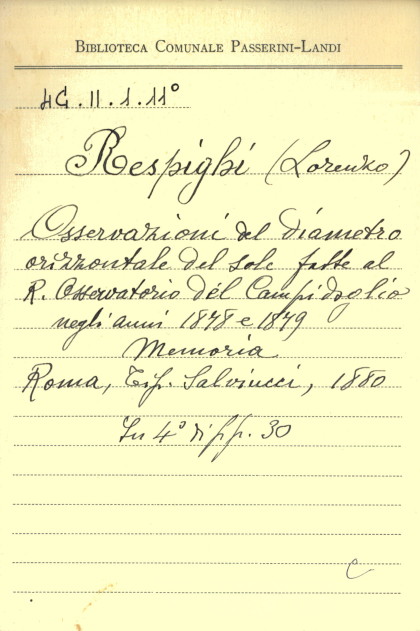 BIBLIOTECA COMUNALE PASSERINI-LANDI
4G.II.1.11°
Respighi (Lorenzo)
Osservazioni del diametro
orizzontale del sole fatte al
R. Osservatorio del Campidoglio
negli anni 1878 e 1879
Memoria
Roma, Tip. Salviucci, 1880
In 4° di pp. 30
c